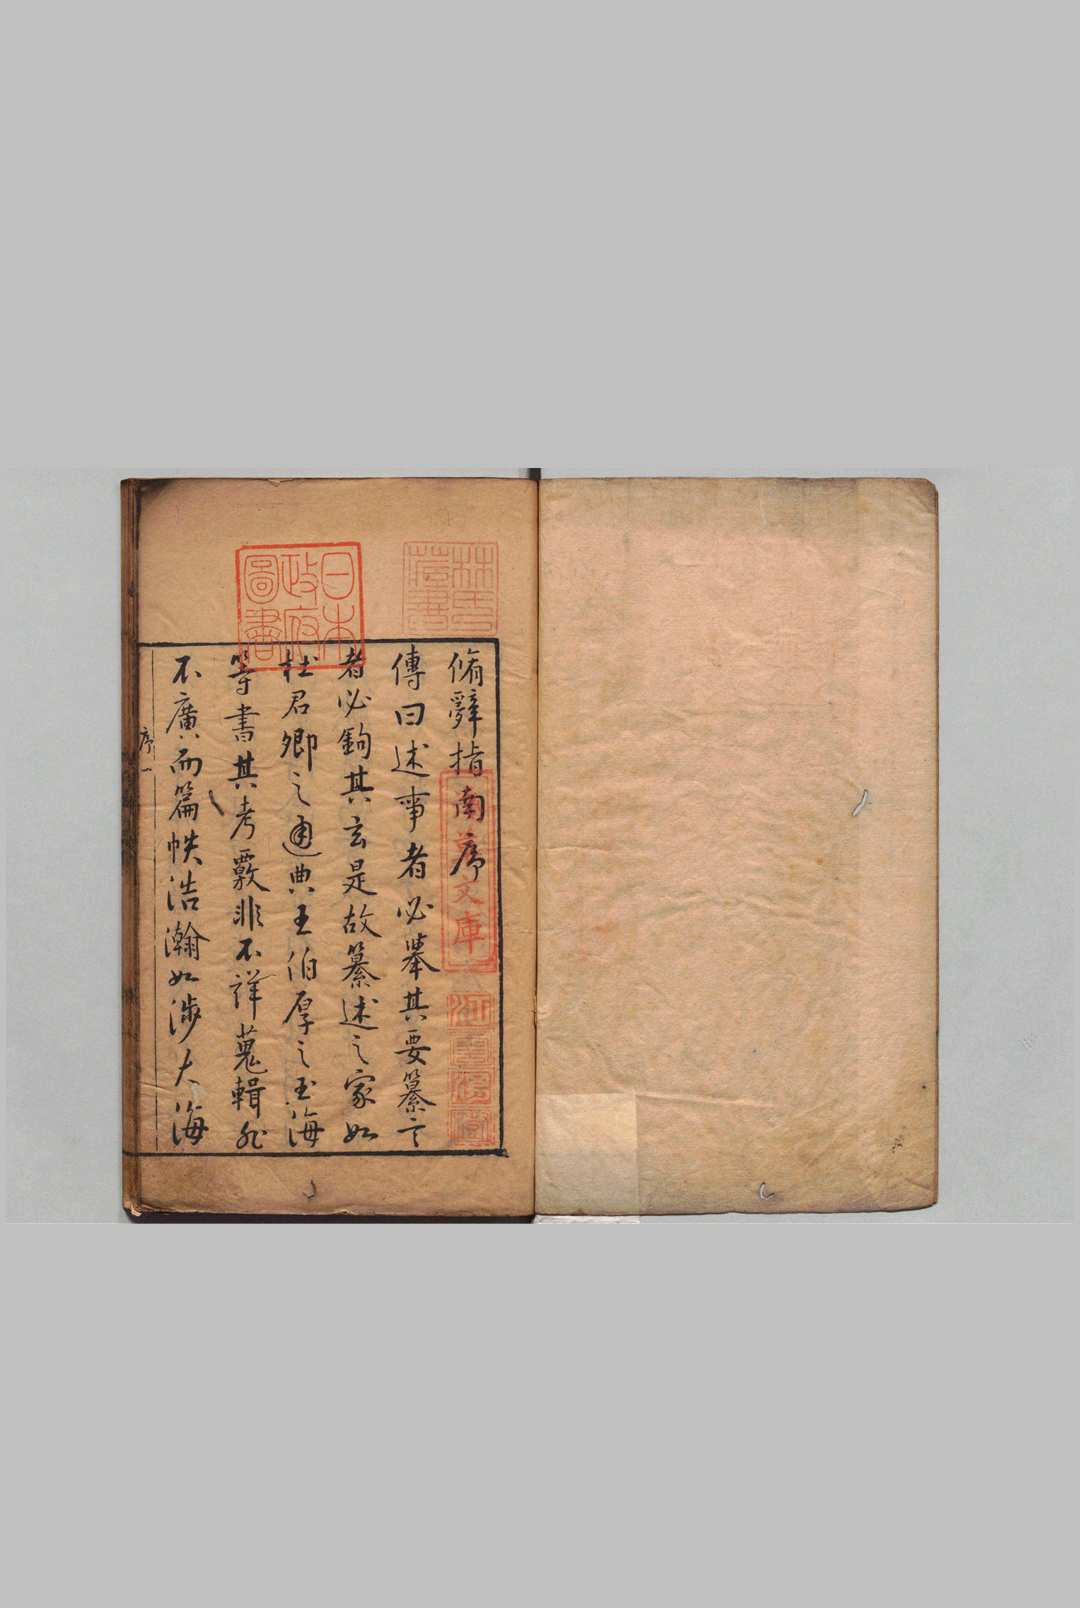 脩辭指南序
傳曰述事者必擧其要纂言
者必鉤其玄是故纂述之家如
杜君卿之通典王伯厚之玉海
等書其考覈非不詳蒐輯非
不廣而篇帙浩瀚如涉大海
序 一
林氏藏書
日本政府圖書
文庫